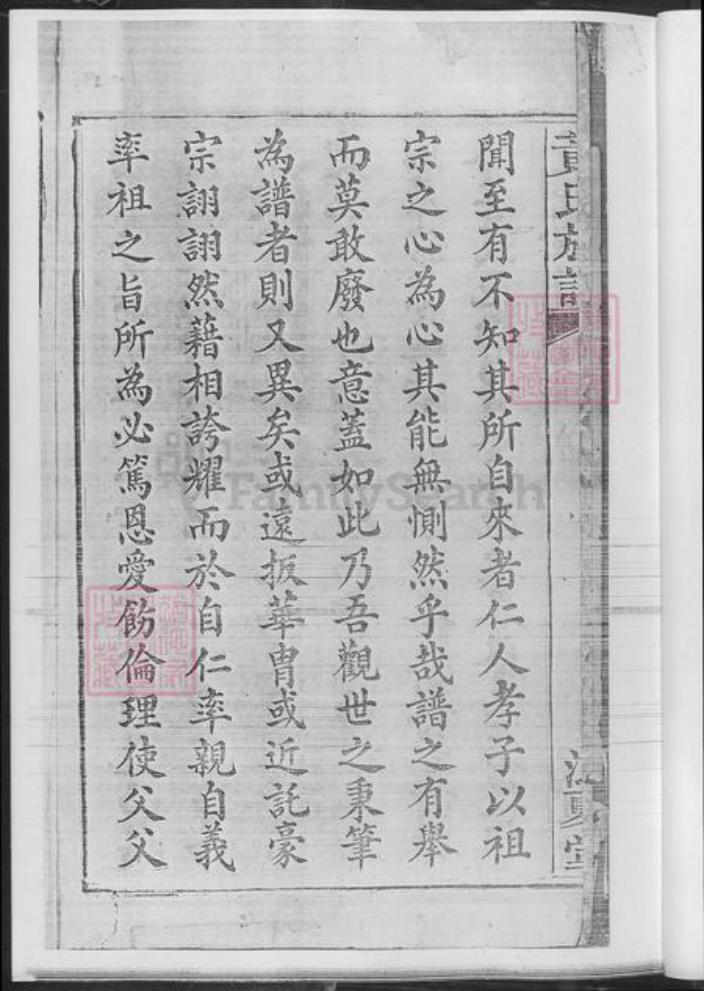 黃氏族譜
江夏堂
聞至有不知其所自來者仁人孝子以祖
宗之心為心其能無惻然乎哉譜之有舉
而莫敢廢也意蓋如此乃吾觀世之秉筆
為譜者則又異矣或遠扳華胄或近託豪
宗詡詡然藉相誇耀而於自仁率親自義
率祖之旨所為必篤恩愛飭倫理使父父
FamilySearch